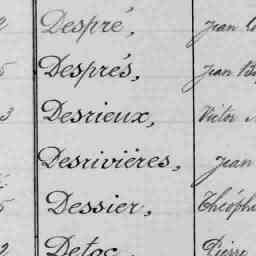 Despré, Jean
5 Desprès, Jean
3 Desrieux, Victor
Desrivières, Jean
5 Dessier, Théophi
2 Detoc, Pierre